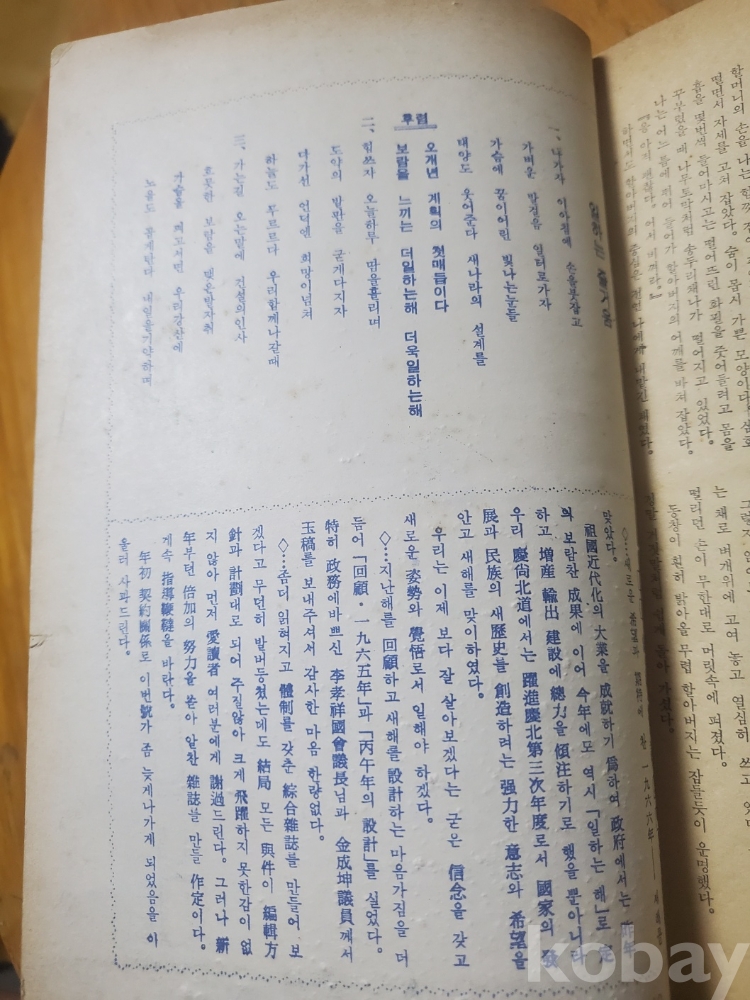 할머니의 손을 나는 힘껏
떨면서 자세를 고쳐 잡았다. 숨이 몹시 가쁜 모양이다.
흠을 몇번씩 들어마시고는 떨어뜨린 화필을 줏어들려고 몸을
꾸부렸을 때 나무토막처럼 송두리채나가 떨어지고 있었다.
나는 어느 틈에 뛰어 들어가 할아버지의 어깨를 바쳐 잡았다.
어서 비켜라.』
하면서도 할아버지의 중심은 전연 나에게 내맡긴 채였다.
는 채로 벼개위에 고여 놓고 열심히 쓰고
떨리던 손이 무한대로 머릿속에 퍼졌다.
동창이 훤히 밝아올 무렵 할아버지는 잠들듯이 운명했다.
일하는 즐거움
一、나가자 이아침에 손을붓잡고
가벼운 발걸음 일터로가자
가슴에 꿈이어린 빛나는눈들
태양도 웃어준다 새나라의 설계를
후렴
오개년 계획의 첫매듭이다
보람을 느끼는 더일하는해 더욱일하는해
二、힘쓰자 오늘하루 땀을흘리며
도약의 발판을 굳게다지자
다가선 언덕엔 희망이넘쳐
하늘도 푸르르다 우리함께나갈때
三、가는길 오는말에 건설의인사
흐뭇한 보람을 맺은발자취
가슴을 펴고서면 우리강산에
노을도 붉게탄다 내일을기약하며
◇…새로운 希望과 期待에 찬 一九六六年
맞았다.
祖國近代化의 大業을 成就하기 爲하여 政府에서는 昨年
의 보람찬 成果에 이어 今年에도 역시 「일하는 해」로 定
하고 增産 輸出 建設에 總力을 傾注하기로 했을 뿐아니라
우리 慶尙北道에서는 躍進慶北第三次年度로서 國家의 發
展과 民族의 새歷史를 創造하려는 强力한 意志와 希望을
안고 새해를 맞이하였다.
우리는 이제 보다 잘 살아보겠다는 굳은 信念을 갖고
새로운 姿勢와 覺悟로서 일해야 하겠다.
◇…지난해를 回顧하고 새해를 設計하는 마음가짐을 더
듬어 「回顧・一九六五年」과 「丙午年의 設計」를 실었다.
특히 政務에바쁘신 李孝祥國會議長님과 金成坤議員께서
玉稿를 보내주셔서 감사한 마음 한량없다.
◇…좀더 읽혀지고 體制를 갖춘 綜合雜誌를 만들어 보
겠다고 무던히 발버둥쳤는데도 結局 모든 與件이 編輯方
針과 計劃대로 되어 주질않아 크게 飛躍하지 못한감이 없
지 않아 먼저 愛讀者 여러분에게 謝過드린다. 그러나 新
年부턴 倍加의 努力을 쏟아 알찬 雜誌를 만들 作定이다.
계속 指導鞭撻을 바란다.
年初 契約關係로 이번號가 좀 늦게나가게 되었음을 아
울러 사과드린다.
kobay